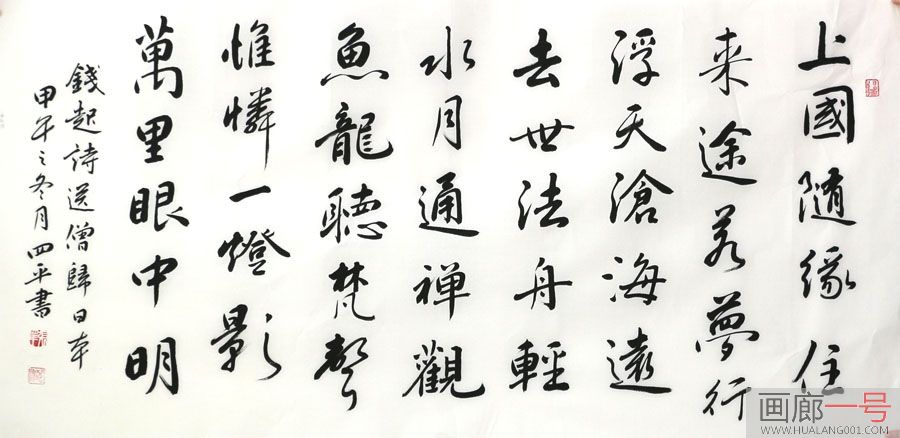 上國随緣住
来途若夢行
浮天滄海遠
去世法舟輕
水月通禅觀
魚龍聽梵聲
惟憐一燈影
萬里眼中明
錢起詩送僧歸日本
甲午之冬月四平書
画廊一号
WWW.HUALANG001.COM